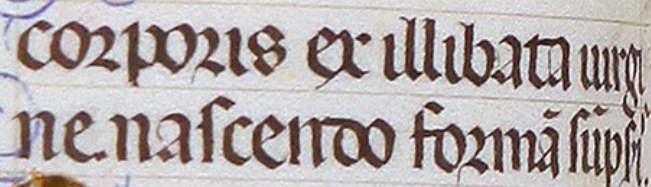 corporis ex illibata uirgi
ne. nascendo formā sūpsı̄.